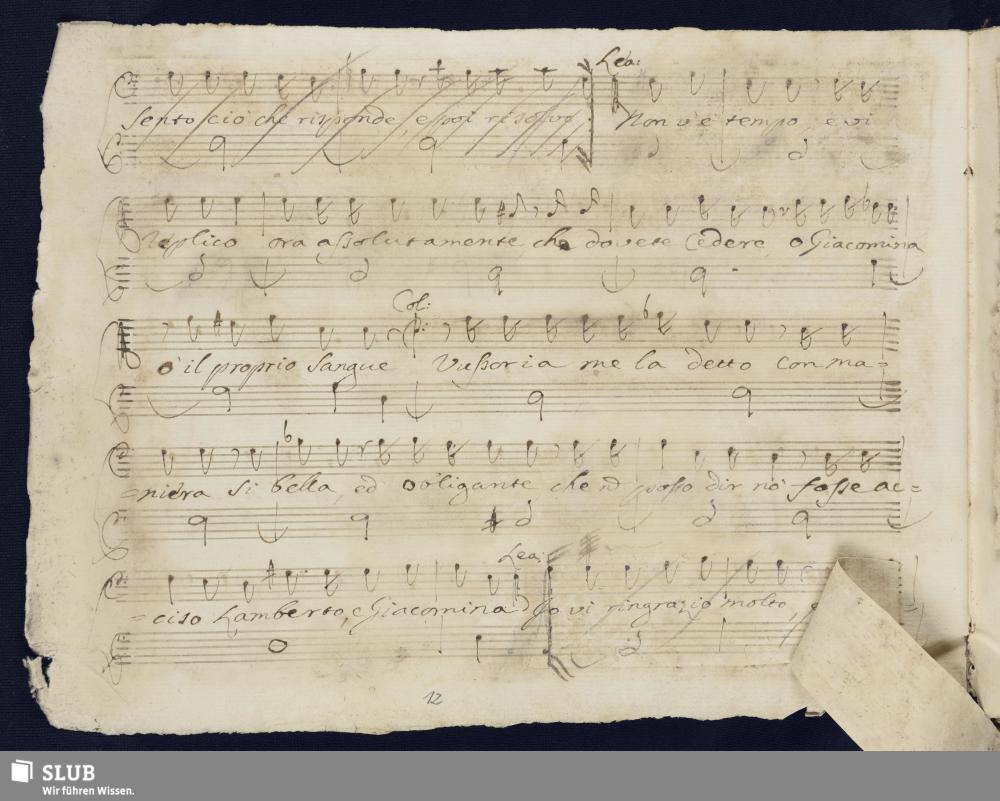 Lea:
Sento ciò che risponde, e poi risolvo Non v'è tempo, e vi
replico ora assolutamente che dovete cedere, o Giacomina
Col:
o' il proprio sangue Vussoria me la detto con ma=
=niera si bella, ed obligante che nō posso dir nò fosse ac=
Lea:
=ciso Lamberto, e Giacomina Io vi ringrazio molto, e
12
SLUB
Wir führen Wissen.